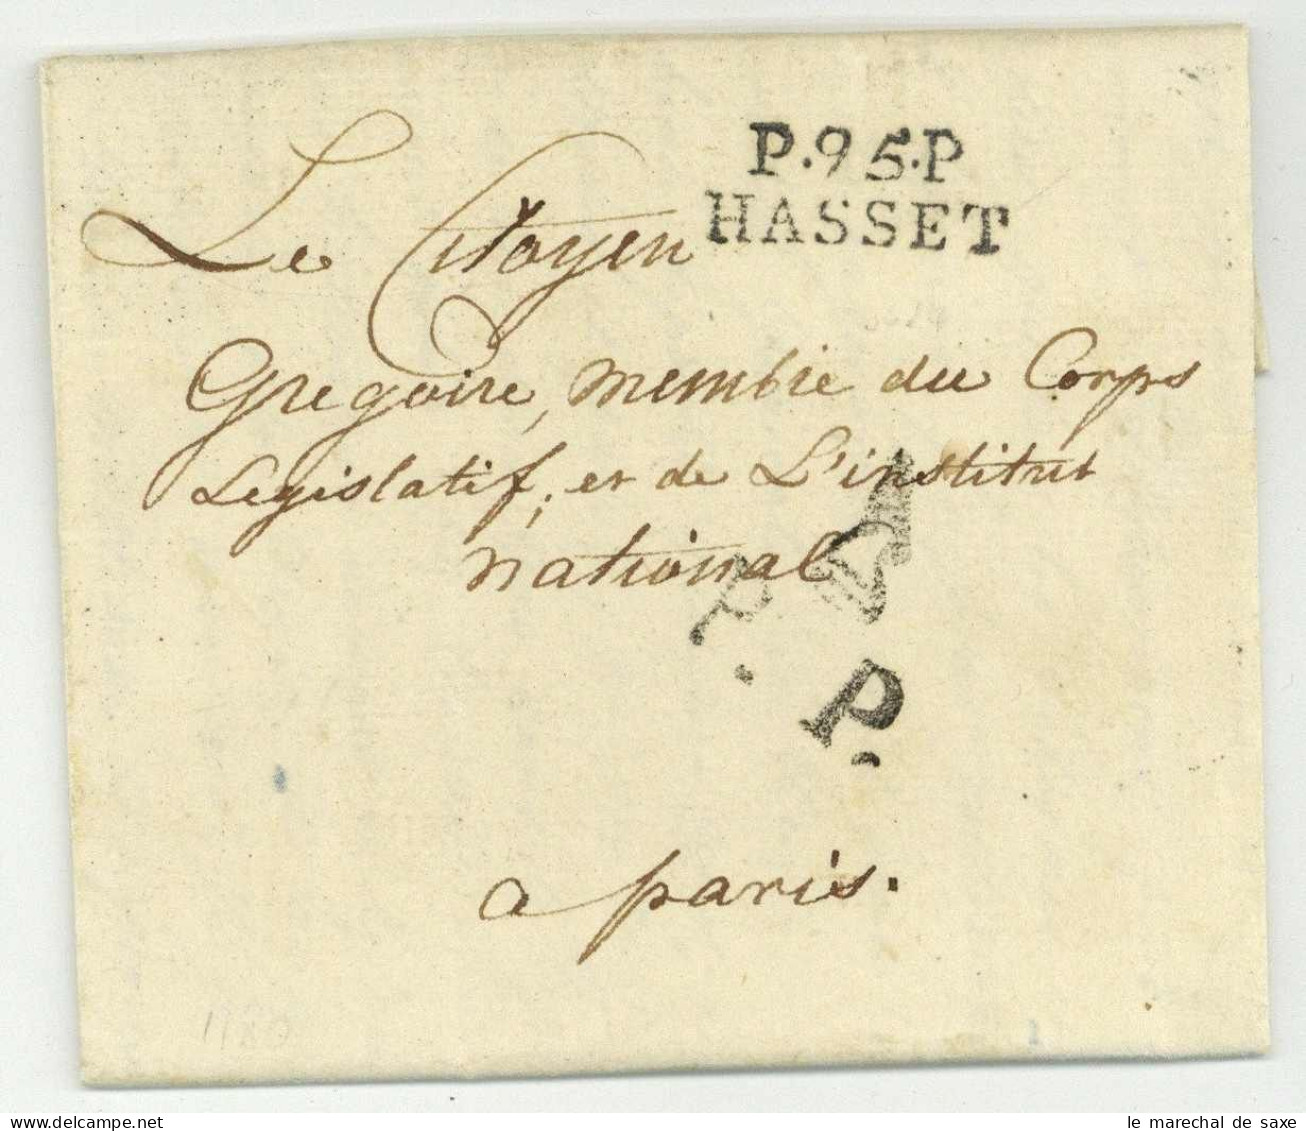 P.95.P
HASSET
Le Citoyen
Gregoire, membre du Corps
Legislatif, et de L'institut
national
P. P.
a paris.
le marechal de saxe